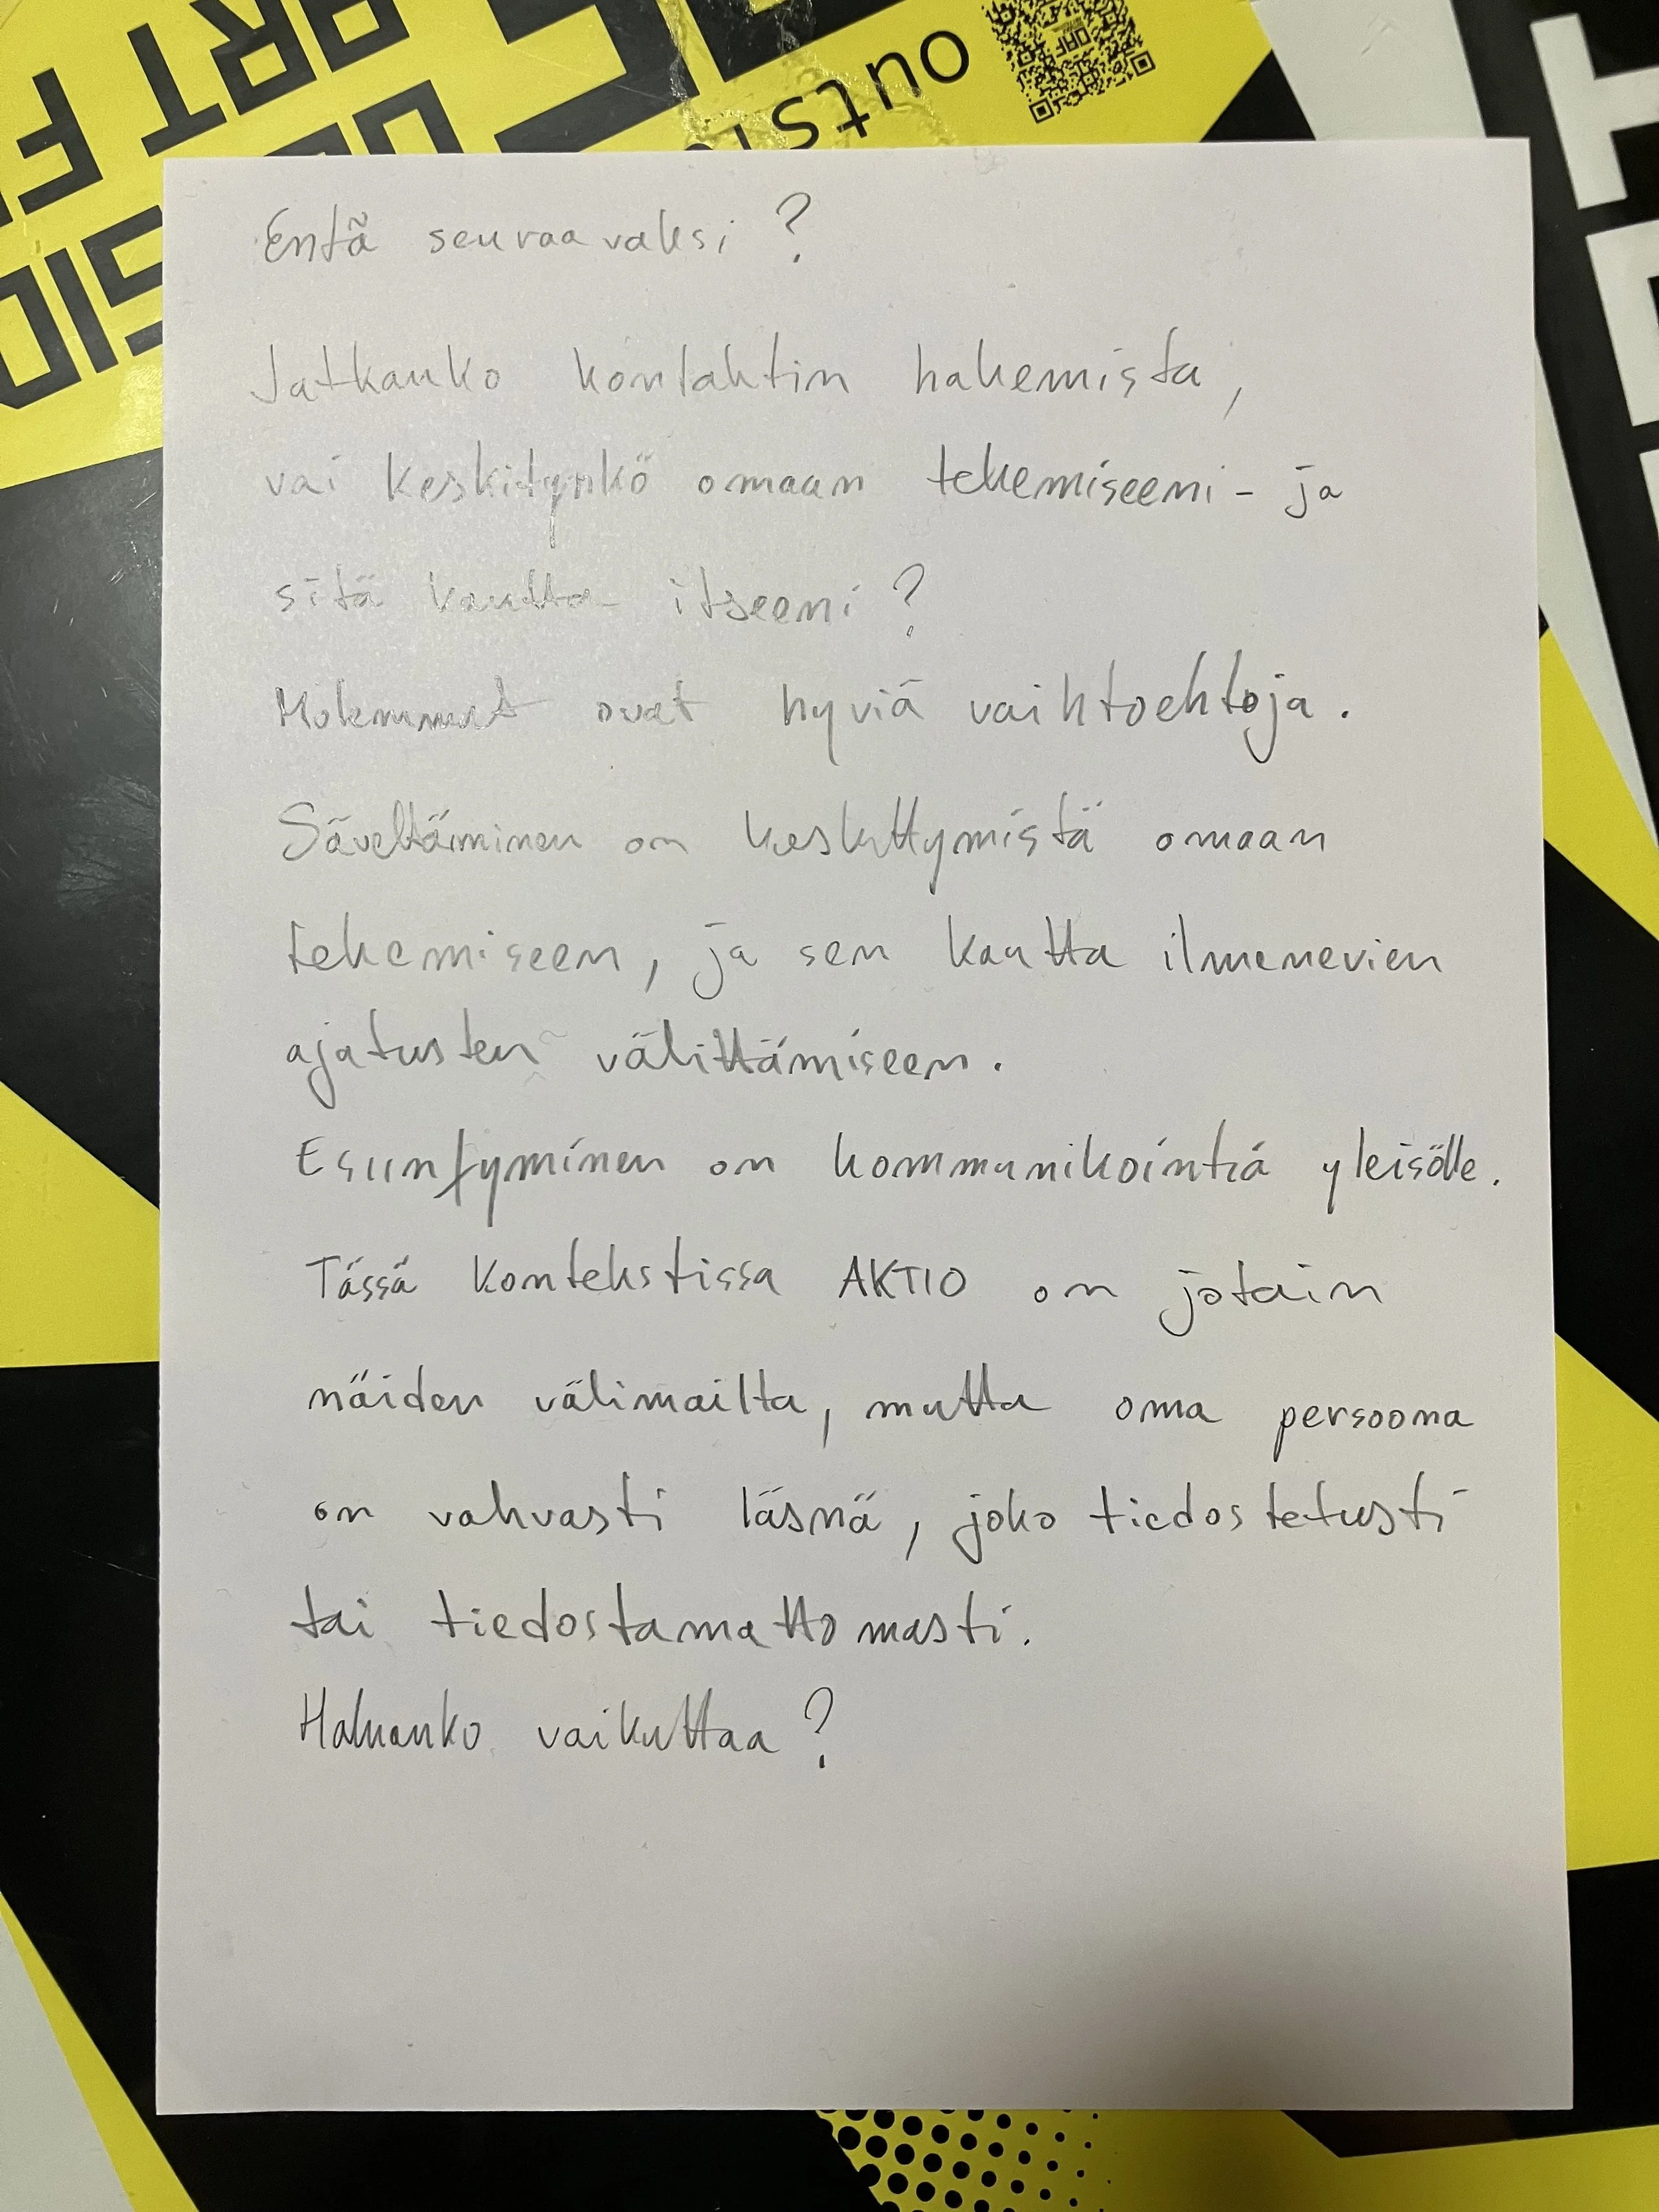 ART F
OUTSI
Entä seuraavaksi ?
Jatkanko kontaktin hakemista,
vai keskitynkö omaan tekemiseeni - ja
sitä kautta itseeni ?
Molemmat ovat hyviä vaihtoehtoja.
Säveltäminen on keskittymistä omaan
tekemiseen, ja sen kautta ilmenevien
ajatusten välittämiseen.
Esiintyminen on kommunikointia yleisölle.
Tässä kontekstissa AKTIO on jotain
näiden välimailta, mutta oma persoona
on vahvasti läsnä, joko tiedostetusti
tai tiedostamattomasti.
Haluanko vaikuttaa ?